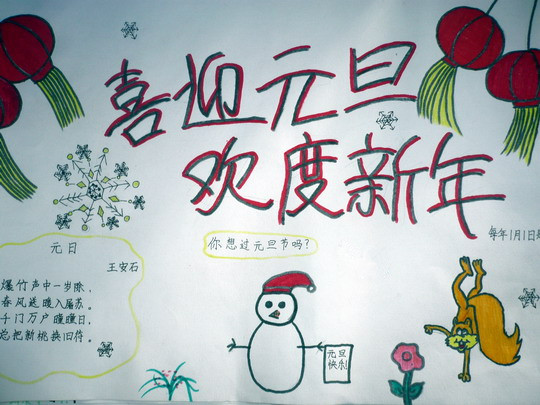 喜迎元旦
欢度新年
元日
王安石
爆竹声中一岁除,
春风送暖入屠苏。
千门万户曈曈日,
总把新桃换旧符。
你想过元旦节吗?
元旦
快乐!
每年1月1日是